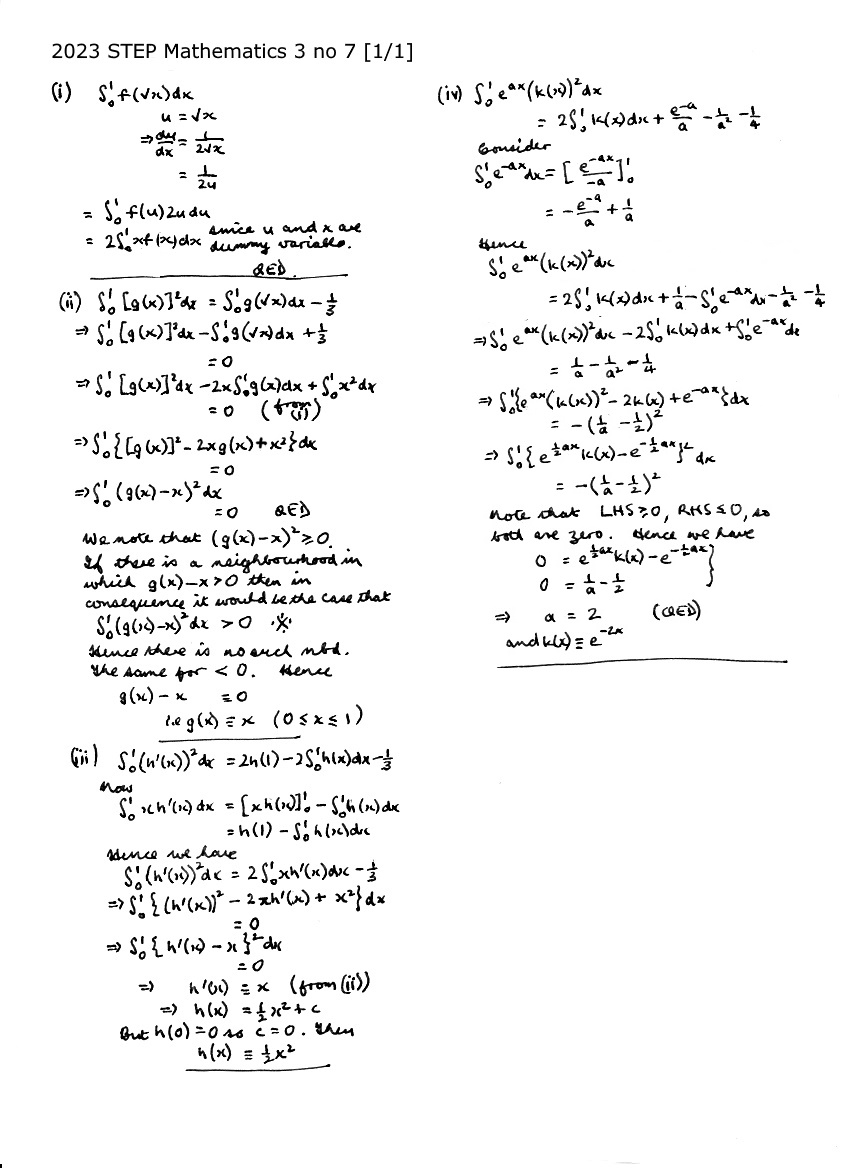 2023 STEP Mathematics 3 no 7 [1/1]
(i) ∫₀¹ f(√x)dx
u = √x
⇒ du/dx = 1/(2√x)
= 1/(2u)
= ∫₀¹ f(u)2u du
= 2∫₀¹ xf(x)dx since u and x are dummy variables.
QED.
(ii) ∫₀¹ [g(x)]²dx = ∫₀¹ g(√x)dx − 1/3
⇒ ∫₀¹ [g(x)]²dx − ∫₀¹ g(√x)dx + 1/3
= 0
⇒ ∫₀¹ [g(x)]²dx − 2x∫₀¹ g(x)dx + ∫₀¹ x²dx
= 0 (from (i))
⇒ ∫₀¹ {[g(x)]² − 2xg(x) + x²}dx
= 0
⇒ ∫₀¹ (g(x) − x)²dx
= 0 QED
We note that (g(x) − x)² ≥ 0.
If there is a neighbourhood in
which g(x) − x > 0 then in
consequence it would be the case that
∫₀¹ (g(x) − x)²dx > 0 ※
Hence there is no such nbd.
The same for < 0. Hence
g(x) − x ≡ 0
i.e g(x) ≡ x (0 ≤ x ≤ 1)
(iii) ∫₀¹ (h'(x))²dx = 2h(1) − 2∫₀¹ h(x)dx − 1/3
Now
∫₀¹ xh'(x)dx = [xh(x)]₀¹ − ∫₀¹ h(x)dx
= h(1) − ∫₀¹ h(x)dx
Hence we have
∫₀¹ (h'(x))²dx = 2∫₀¹ xh'(x)dx − 1/3
⇒ ∫₀¹ {(h'(x))² − 2xh'(x) + x²}dx
= 0
⇒ ∫₀¹ {h'(x) − x}²dx
= 0
⇒ h'(x) ≡ x (from (ii))
⇒ h(x) = ½x² + c
But h(0) = 0 so c = 0. Then
h(x) ≡ ½x²
(iv) ∫₀¹ e^{ax}(k(x))²dx
= 2∫₀¹ k(x)dx + e^{-a}/a − 1/a² − 1/4
Consider
∫₀¹ e^{-ax}dx = [e^{-ax}/−a]₀¹
= −e^{-a}/a + 1/a
Hence
∫₀¹ e^{ax}(k(x))²dx
= 2∫₀¹ k(x)dx + 1/a − ∫₀¹ e^{-ax}dx − 1/a² − 1/4
⇒ ∫₀¹ e^{ax}(k(x))²dx − 2∫₀¹ k(x)dx + ∫₀¹ e^{-ax}dx
= 1/a − 1/a² − 1/4
⇒ ∫₀¹ {e^{ax}(k(x))² − 2k(x) + e^{-ax}}dx
= −(1/a − 1/2)²
⇒ ∫₀¹ {e^{½ax}k(x) − e^{-½ax}}²dx
= −(1/a − 1/2)²
Note that LHS ≥ 0, RHS ≤ 0, so
both are zero. Hence we have
0 = e^{½ax}k(x) − e^{-½ax} }
0 = 1/a − 1/2
⇒ a = 2 (QED)
and k(x) ≡ e^{-2x}